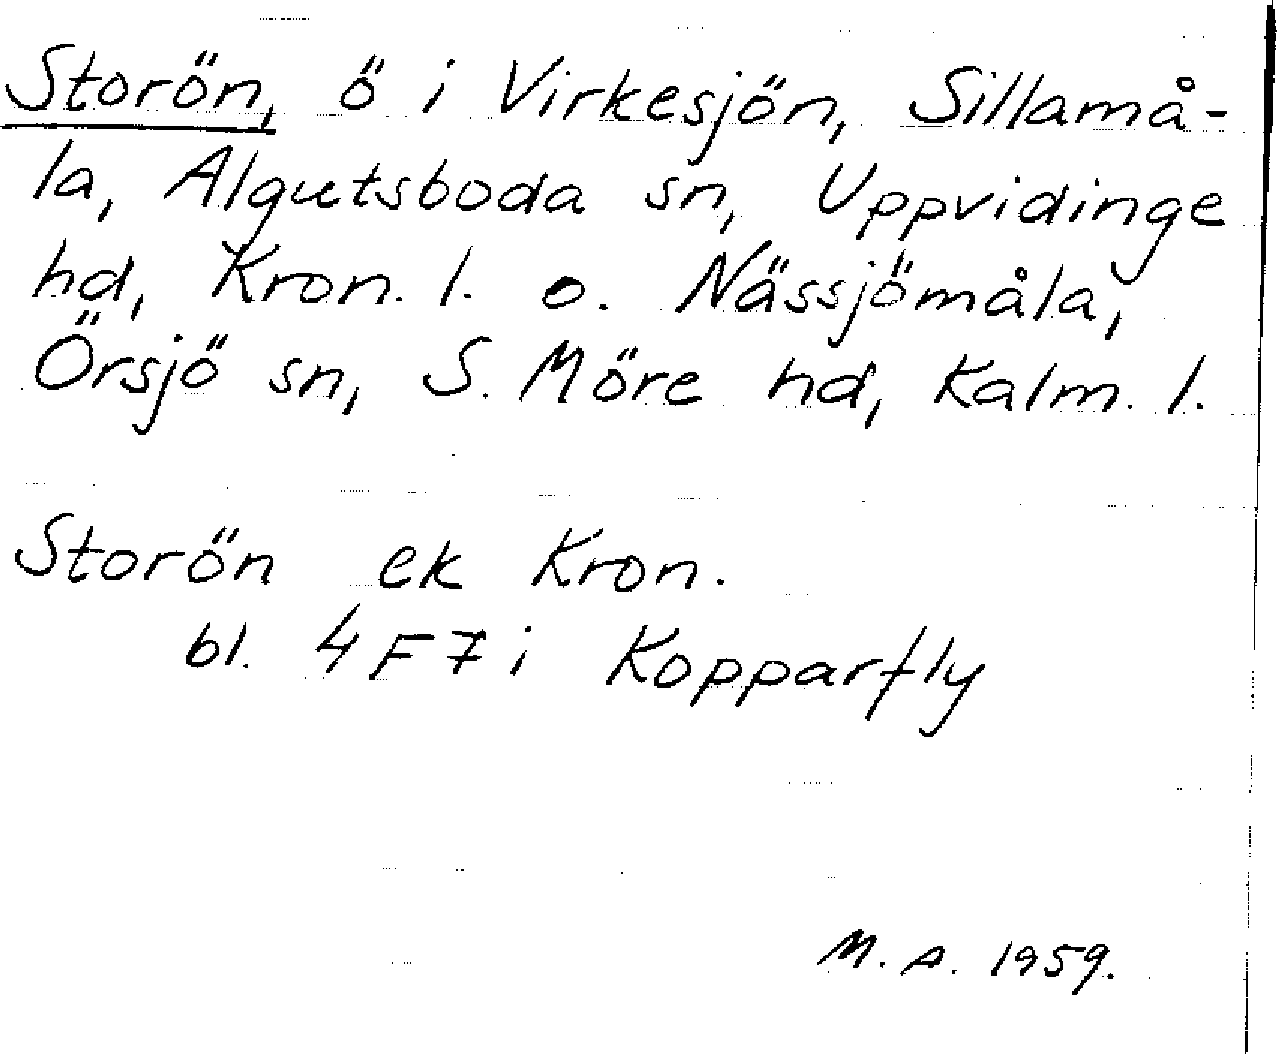 Storön, ö i Virkesjön, Sillamå-
la, Algutsboda sn, Uppvidinge
hd, Kron. l. o. Nässjömåla,
Örsjö sn, S. Möre hd, Kalm. l.
Storön ek Kron.
bl. 4 F 7 i Kopparfly
M. A. 1959.